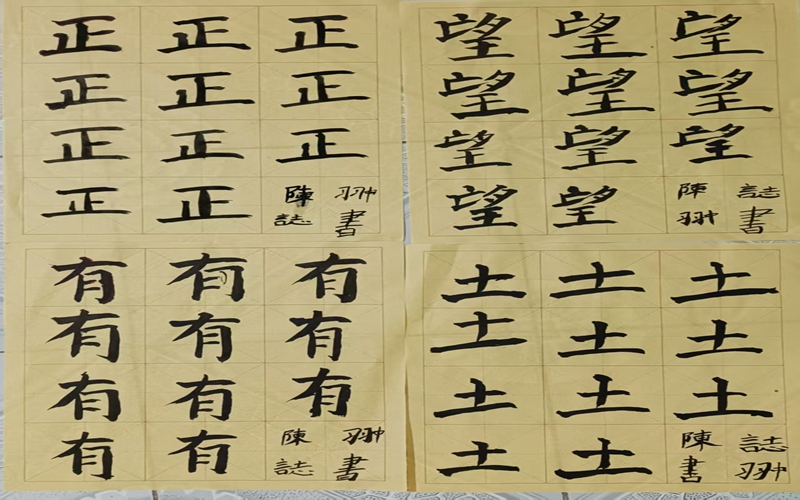 正正正
正正正
正正正
正正陳翀
誌書
望望望
望望望
望望望
望望陳誌
翀書
有有有
有有有
有有有
有有陳翀
誌書
土土土
土土土
土土土
土土陳誌
書翀